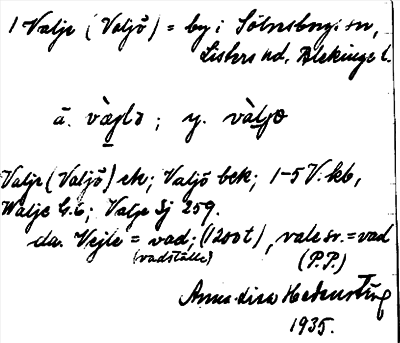 1 Valje (Valjö) = by i Sölvesborgs sn,
Listers hd, Blekinge l.
ä. vàɟlə; y. vàljə
Valje (Valjö) ek; Valjö bek; 1-5 V. kb,
Walje G.c; Valje Sj 259.
da. Vejle = vad; (1200t), vale sv. = vad
(vadställe) (P.P.)
Anna-Lisa
1935.